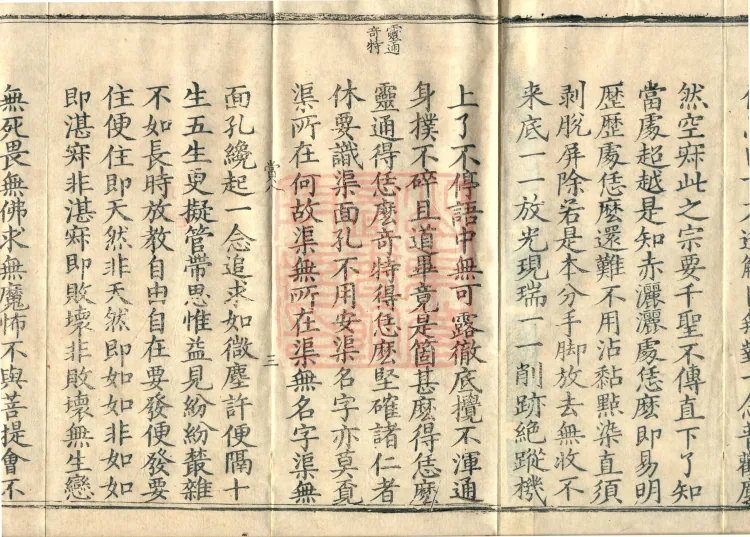 然空寂此之宗要千聖不傳直下了知
當處超越是知赤灑灑處恁麽即易明
歷歷處恁麽還難不用沾黏點染直須
剥脫屏除若是本分手脚放去無收不
来底一一放光現瑞一一削跡絶蹤機
靈通
奇特
上了不停語中無可露徹底攪不渾通
身撲不碎且道畢竟是箇甚麽得恁麽
靈通得恁麽奇特得恁麽堅確諸仁者
休要識渠面孔不用安渠名字亦莫覓
渠所在何故渠無所在渠無名字渠無
三
面孔纔起一念追求如微塵許便隔十
生五生更擬管帶思惟益見紛紛叢雜
不如長時放教自由自在要發便發要
住便住即天然非天然即如如非如如
即湛寂非湛寂即敗壞非敗壞無生戀
無死畏無佛求無魔怖不與菩提會不